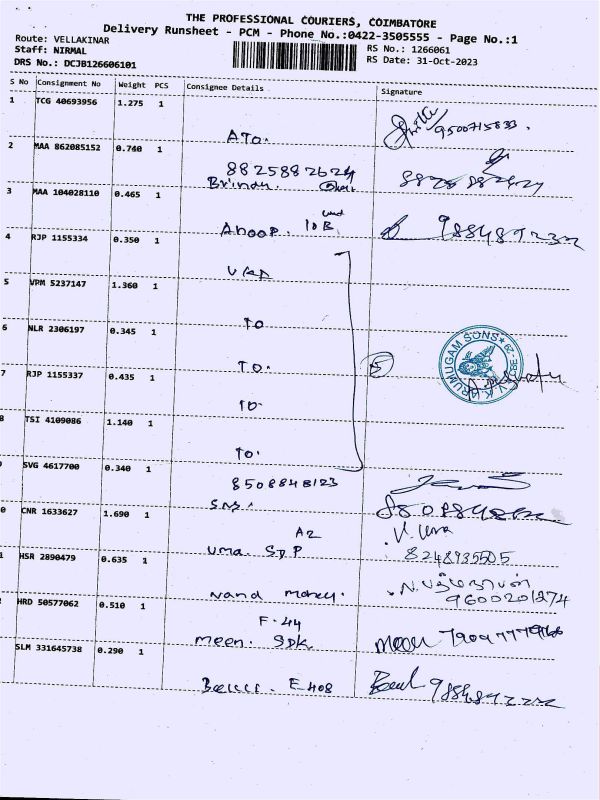 THE PROFESSIONAL COURIERS, COIMBATORE
Delivery Runsheet - PCM - Phone No.:0422-3505555 - Page No.:1
Route: VELLAKINAR
Staff: NIRMAL
DRS No.: DCJB126606101
RS No.: 1266061
RS Date: 31-Oct-2023
S No Consignment No Weight PCS Consignee Details Signature
1 TCG 40693956 1.275 1
ATO. 9500715833.
2 MAA 862085152 0.740 1
8825882624
Brinda.
3 MAA 104028110 0.465 1
Anoop. 10B
4 RJP 1155334 0.350 1
5 VPM 5237147 1.360 1
TO
6 NLR 2306197 0.345 1
TO.
5
V.K.ARUMUGAM SONS
7 RJP 1155337 0.435 1
TO.
8 TSI 4109086 1.140 1
TO.
SVG 4617700 0.340 1
8508848123
0 CNR 1633627 1.690 1
A2
Uma. SDP
V. Uma
8248935505
1 HSR 2890479 0.635 1
Nand money.
9600201274
HRD 50577062 0.510 1
F-44
Meen. SDK
SLM 331645738 0.290 1
E408